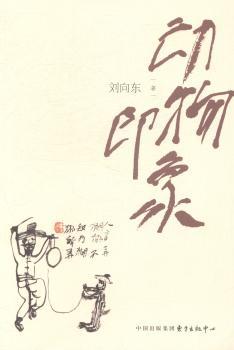 动物
印象
刘向东
著
中国出版集团 东方出版中心